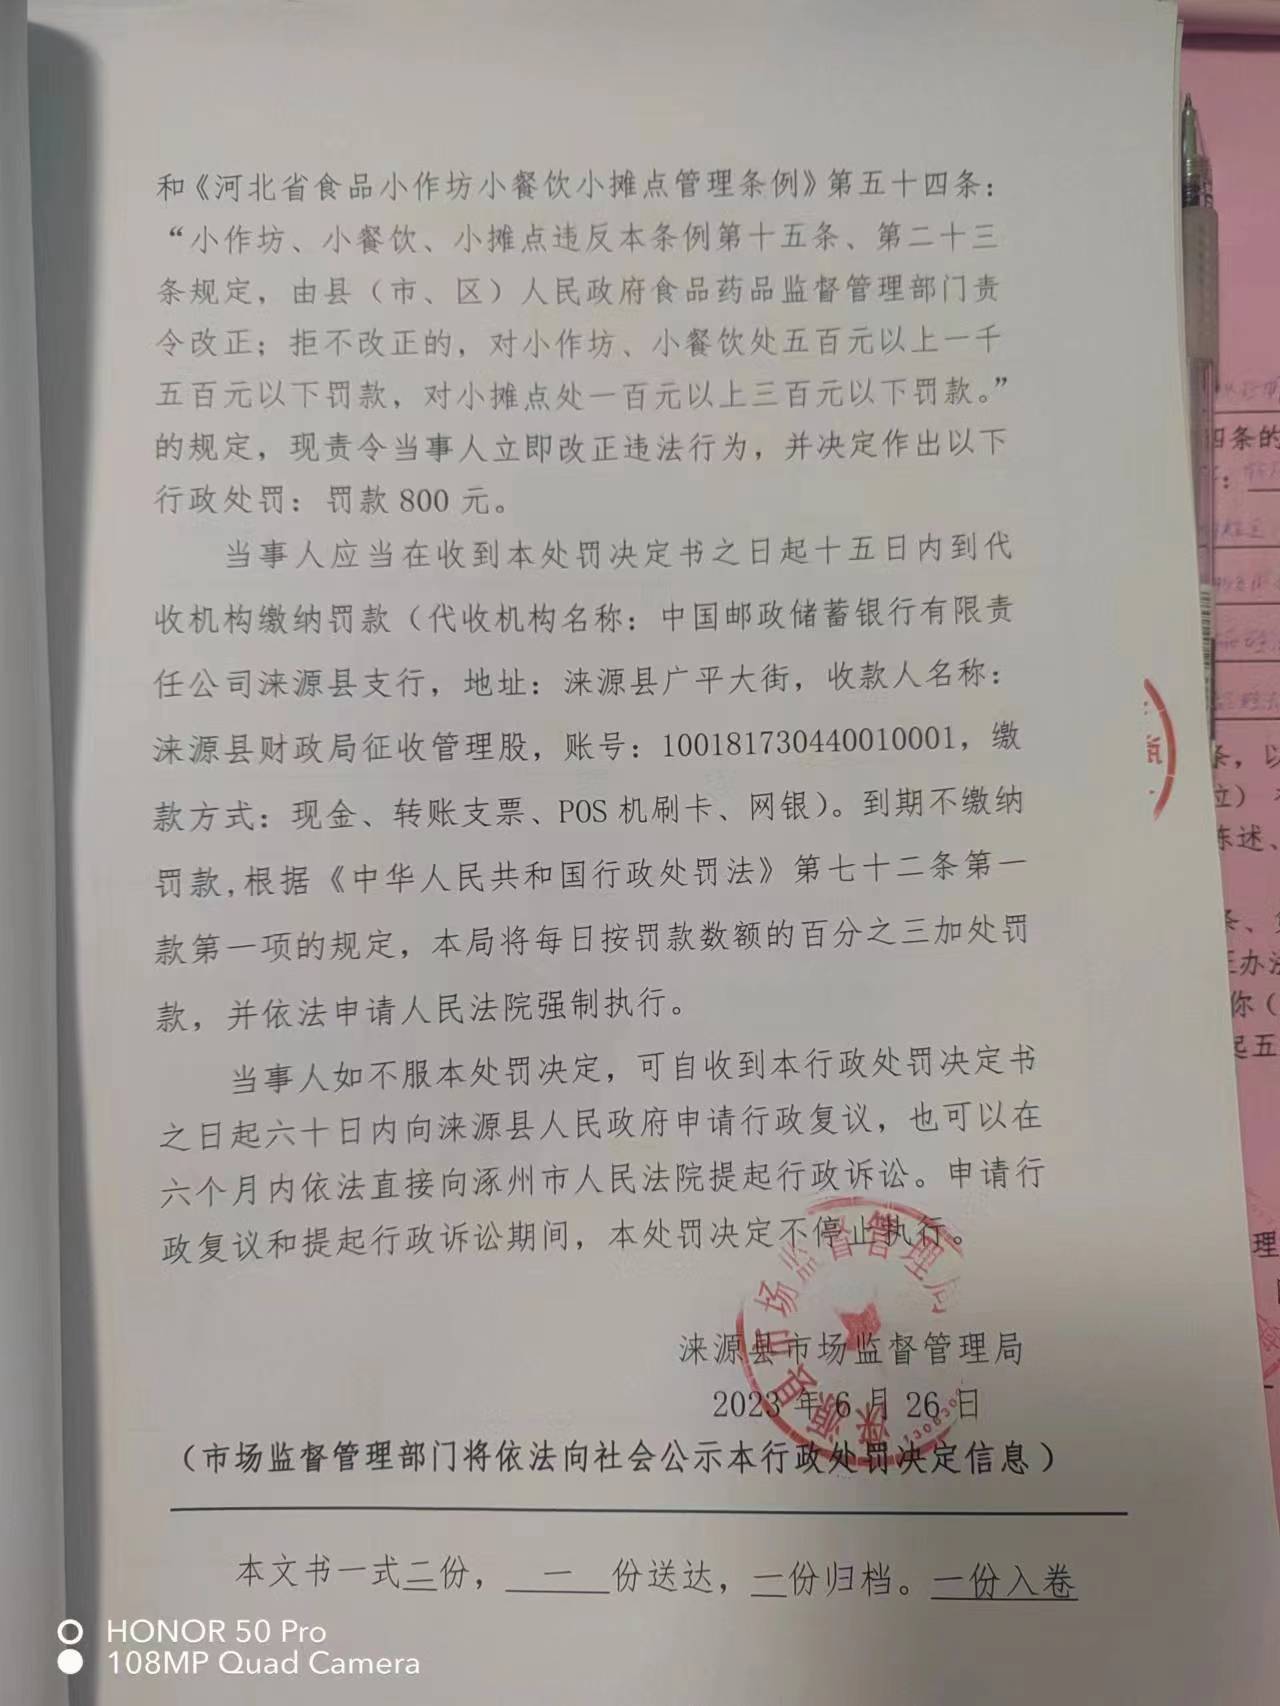 和《河北省食品小作坊小餐饮小摊点管理条例》第五十四条：
“小作坊、小餐饮、小摊点违反本条例第十五条、第二十三
条规定，由县（市、区）人民政府食品药品监督管理部门责
令改正；拒不改正的，对小作坊、小餐饮处五百元以上一千
五百元以下罚款，对小摊点处一百元以上三百元以下罚款。”
的规定，现责令当事人立即改正违法行为，并决定作出以下
行政处罚：罚款 800 元。
当事人应当在收到本处罚决定书之日起十五日内到代
收机构缴纳罚款（代收机构名称：中国邮政储蓄银行有限责
任公司涞源县支行，地址：涞源县广平大街，收款人名称：
涞源县财政局征收管理股，账号：100181730440010001，缴
款方式：现金、转账支票、POS 机刷卡、网银）。到期不缴纳
罚款,根据《中华人民共和国行政处罚法》第七十二条第一
款第一项的规定，本局将每日按罚款数额的百分之三加处罚
款，并依法申请人民法院强制执行。
当事人如不服本处罚决定，可自收到本行政处罚决定书
之日起六十日内向涞源县人民政府申请行政复议，也可以在
六个月内依法直接向涿州市人民法院提起行政诉讼。申请行
政复议和提起行政诉讼期间，本处罚决定不停止执行。
涞源县市场监督管理局
涞源县市场监督管理局
2023 年 6 月 26 日
（市场监督管理部门将依法向社会公示本行政处罚决定信息）
本文书一式三份，一份送达，一份归档。一份入卷
四条的
条，以
位）
陈述、
条、
证办法
你（
起五
理
HONOR 50 Pro
108MP Quad Camera